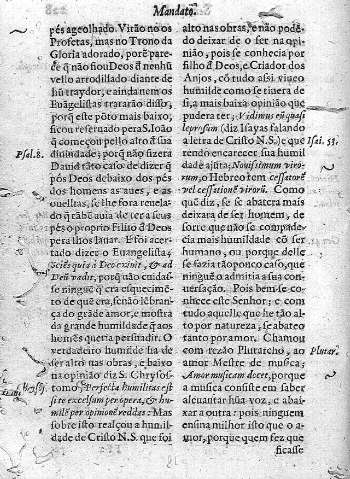 Mandato.
pés ageolhado. Virão no os
Profetas, mas no Trono da
Gloria adorado, porẽ pare-
ce q̃ não fiou Deos a nenhũ
vello arrodillado diante de
hũ traydor, e ainda nem os
Euãgelistas tratarão disso,
porq̃ este põto mais baixo,
ficou reseruado pera S. Ioão
q̃ começou pello alto da sua
diuindade; porq̃ não fizera
Psal. 8.
Dauid tãto caso de dizer q̃
pòs Deos debaxo dos pès
dos homens as aues, e as
ouelhas, se lhe fora reuela-
do q̃ tãbẽ auia de ter a seus
pès o proprio Filho d' Deos
pera lhos lauar. E foi acer-
tado dizer o Euangelista;
Sciẽs quia à Deo exiuit, & ad
Deũ vadit, porq̃ não cuidas-
se ninguẽ q̃ era esquecimẽ-
to de quẽ era, senão lẽbran-
ça do grãde amor, e mostra
da grande humildade q̃ aos
homẽs queria persuadir. O
verdadeiro humilde ha de
ser alto nas obras, e baixo
na opinião diz S. Chrysos-
tomo, Perfecta humilitas est si
te excelsam per opera, & hu-
milẽ per opinionẽ reddas: Mas
sobre isto realçou a humil-
dade de Cristo N. S. que foi
alto nas obras, e não podẽ-
do deixar de o ser na opi-
nião, pois se conhecia por
filho d' Deos, e Criador dos
Anjos, cõ tudo assi viueo
humilde como se tiuera de
si, a mais baixa opinião que
pudera ter; Vidimus eũ quasi
leprosum (diz Isayas falando
Isai. 53.
a letra de Cristo N. S.) e que
rendo encarecer sua humil
dade ajũta; Nouissimum viro-
rum, o Hebreo tem cessatorẽ
vel cessationẽ virorũ. Como
quẽ diz, se se abatera mais
deixara de ser homem, de
sorte que não se compade-
cia mais humildade cõ ser
humano, ou porque delle
se fazia tão pouco caso, que
ninguẽ o admitia a sua con-
uersação. Pois bem se co-
nhece este Senhor; e com
tudo aquelle que he tão al-
to por natureza, se abateo
tanto por amor. Chamou
com rezão Plutarcho, ao
Plutar.
amor Mestre de musica;
Amor musicam docet, porque
a musica consiste em saber
aleuantar hũa voz, e abai-
xar a outra: pois ninguem
ensina milhor isto que o a-
mor, porque quem fez que
ficasse